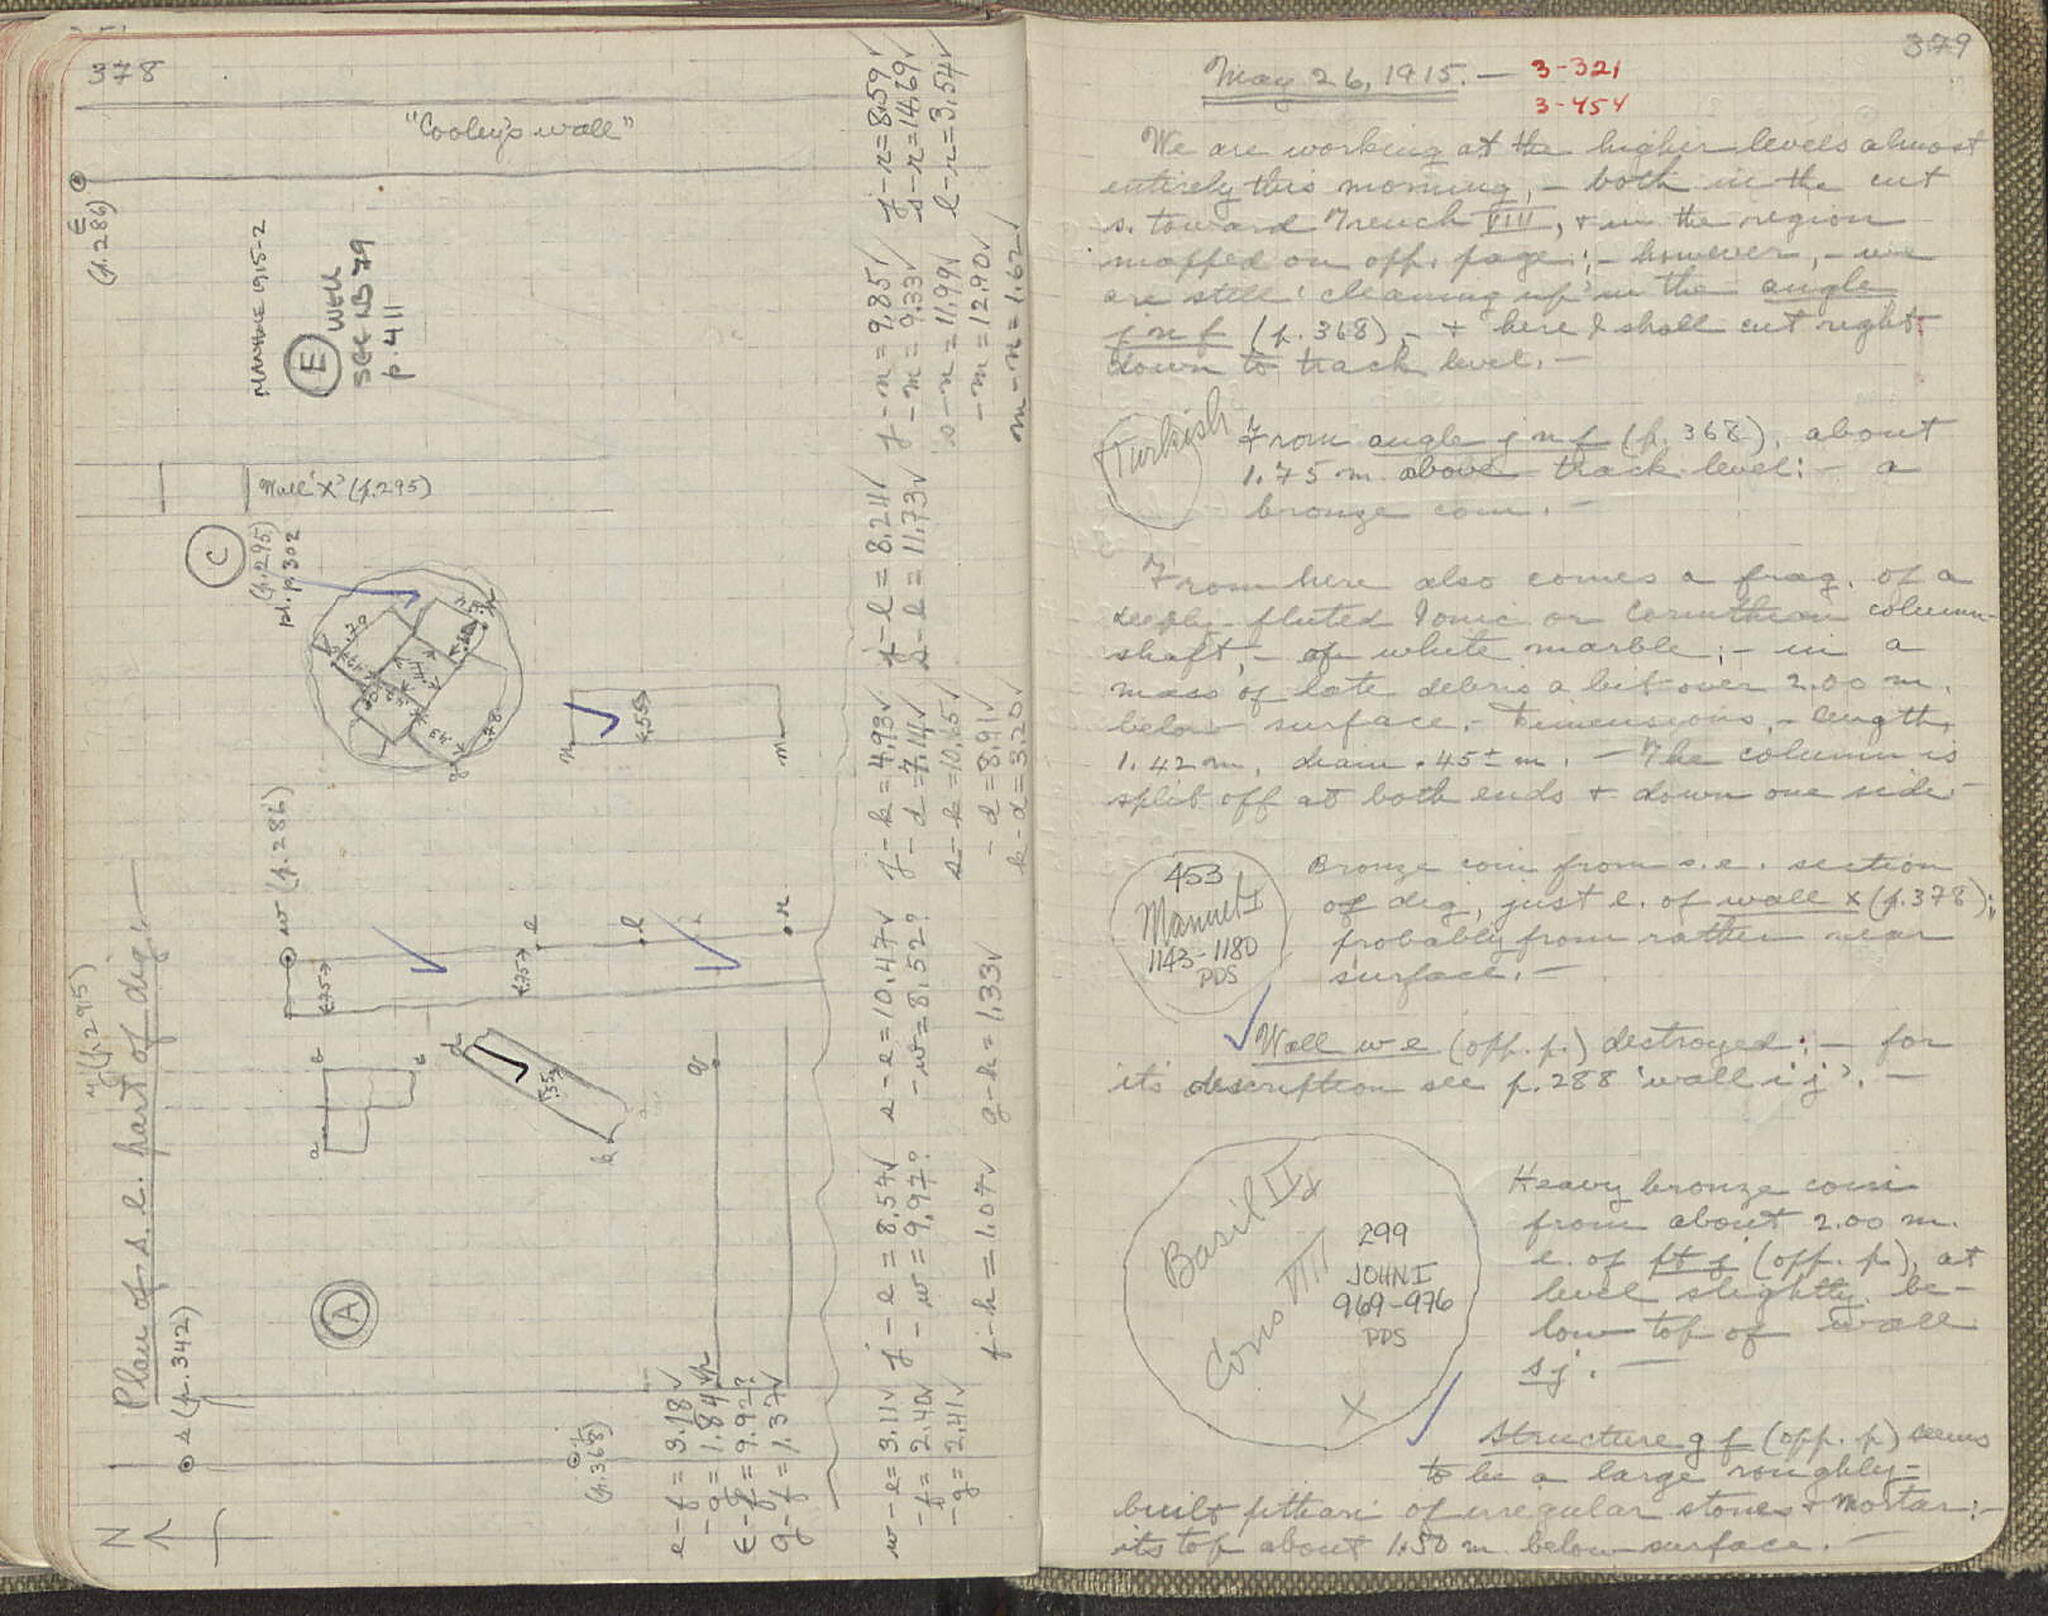 378
"Cooley's wall"
E
(p. 286)
MANHOLE 1915-2
E WELL
SEE NB 79
p. 411
Wall 'X' (p. 295)
C
(p. 295)
pl. p. 302
w (p. 286)
(p. 295)
Plan of s. e. part of dig:—
s (p. 342)
A
(p. 368)
N
.70
.55
.75
.75
.55
n
m
e
l
r
a
d
k
q
e – f = 3.18 ✓
– g = 1.84 ✓
g – f = 1.37 ✓
w – e = 3.11 ✓
– f = 2.40 ✓
– g = 2.41 ✓
j – e = 8.54 ✓
– w = 9.97?
f – h = 1.07 ✓
s – e = 10.47 ✓
– w = 8.52?
g – h = 1.33 ✓
j – k = 4.93 ✓
– d = 7.14 ✓
s – k = 10.65 ✓
– d = 8.91 ✓
k – d = 3.20 ✓
j – l = 8.24 ✓
s – l = 11.73 ✓
j – n = 9.85 ✓
j – m = 9.33 ✓
s – n = 11.99 ✓
– m = 12.90 ✓
m – n = 1.62 ✓
j – r = 8.59 ✓
s – r = 14.69 ✓
l – r = 3.54 ✓
379
May 26, 1915. — 3-321
3-454
We are working at the higher levels almost
entirely this morning, – both in the cut
s. toward Trench VIII, & in the region
mapped on opp. page; – however, – we
are still 'cleaning up' in the angle
j n f (p. 368), – & here I shall cut right
down to track level. —
Turkish
From angle j n f (p. 368), about
1.75 m. above track level: – a
bronze coin. —
From here also comes a frag. of a
deeply fluted Ionic or Corinthian column-
shaft, – of white marble; – in a
mass of late debris a bit over 2.00 m.
below surface. – Dimensions, – length,
1.42 m, diam .45± m. — The column is
split off at both ends & down one side –
453
Manuel I
1143-1180
PDS
Bronze coin from s. e. section
of dig, just e. of wall x (p. 378);
probably from rather near
surface. —
Wall w e (opp. p.) destroyed: – for
it's description see p. 288 'wall i j'. —
Basil II &
Cons VIII
X
299
JOHN I
969-976
PDS
Heavy bronze coin
from about 2.00 m.
e. of pt j (opp. p), at
level slightly be-
low top of wall
s j. —
Structure g f (opp. p) seems
to be a large roughly-
built pithari of irregular stones & mortar: –
it's top about 1.50 m. below surface. —